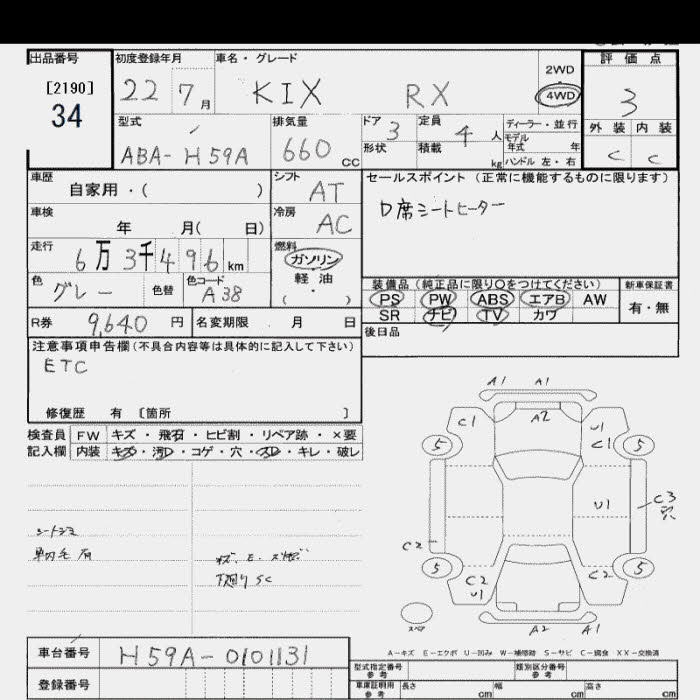 出品番号 初度登録年月 車名・グレード 評価点
[2190]
34
22 7月 KIX RX 2WD 4WD 3
型式 排気量 ドア 定員 ディーラー・並行 外装 内装
ABA-H59A 660cc 3 4人 モデル年式 年 C C
形状 積載 kg ハンドル 左・右
車歴 シフト セールスポイント (正常に機能するものに限ります)
自家用・( ) AT D席シートヒーター
車検 冷房
年 月( 日) AC
走行 燃料
6万3千496km ガソリン
軽油
( ・ )
色 グレー 色替 色コード A38
装備品 (純正品に限り○をつけてください) 新車保証書
PS PW ABS エアB AW 有・無
SR ナビ TV カワ
R券 9,640円 名変期限 月 日
後日品
注意事項申告欄(不具合内容等は具体的に記入して下さい)
ETC
修復歴 有 [箇所 ]
検査員 FW キズ・飛石・ヒビ割・リペア跡・×要
記入欄 内装 キズ・汚レ・コゲ・穴・スレ・キレ・破レ
A1 A1
C1 A2 U1
5 C1 5
U1 C3
穴
C2
5 C2 C2 5
U1
A2 A1
下廻りSC
A-キズ E-エクボ U-凹み W-補修跡 S-サビ C-腐食 XX-交換済
車台番号 H59A-0101131
登録番号
型式指定番号 参考 類別区分番号 参考
車庫証明用 参考 長さ cm 幅 cm 高さ cm